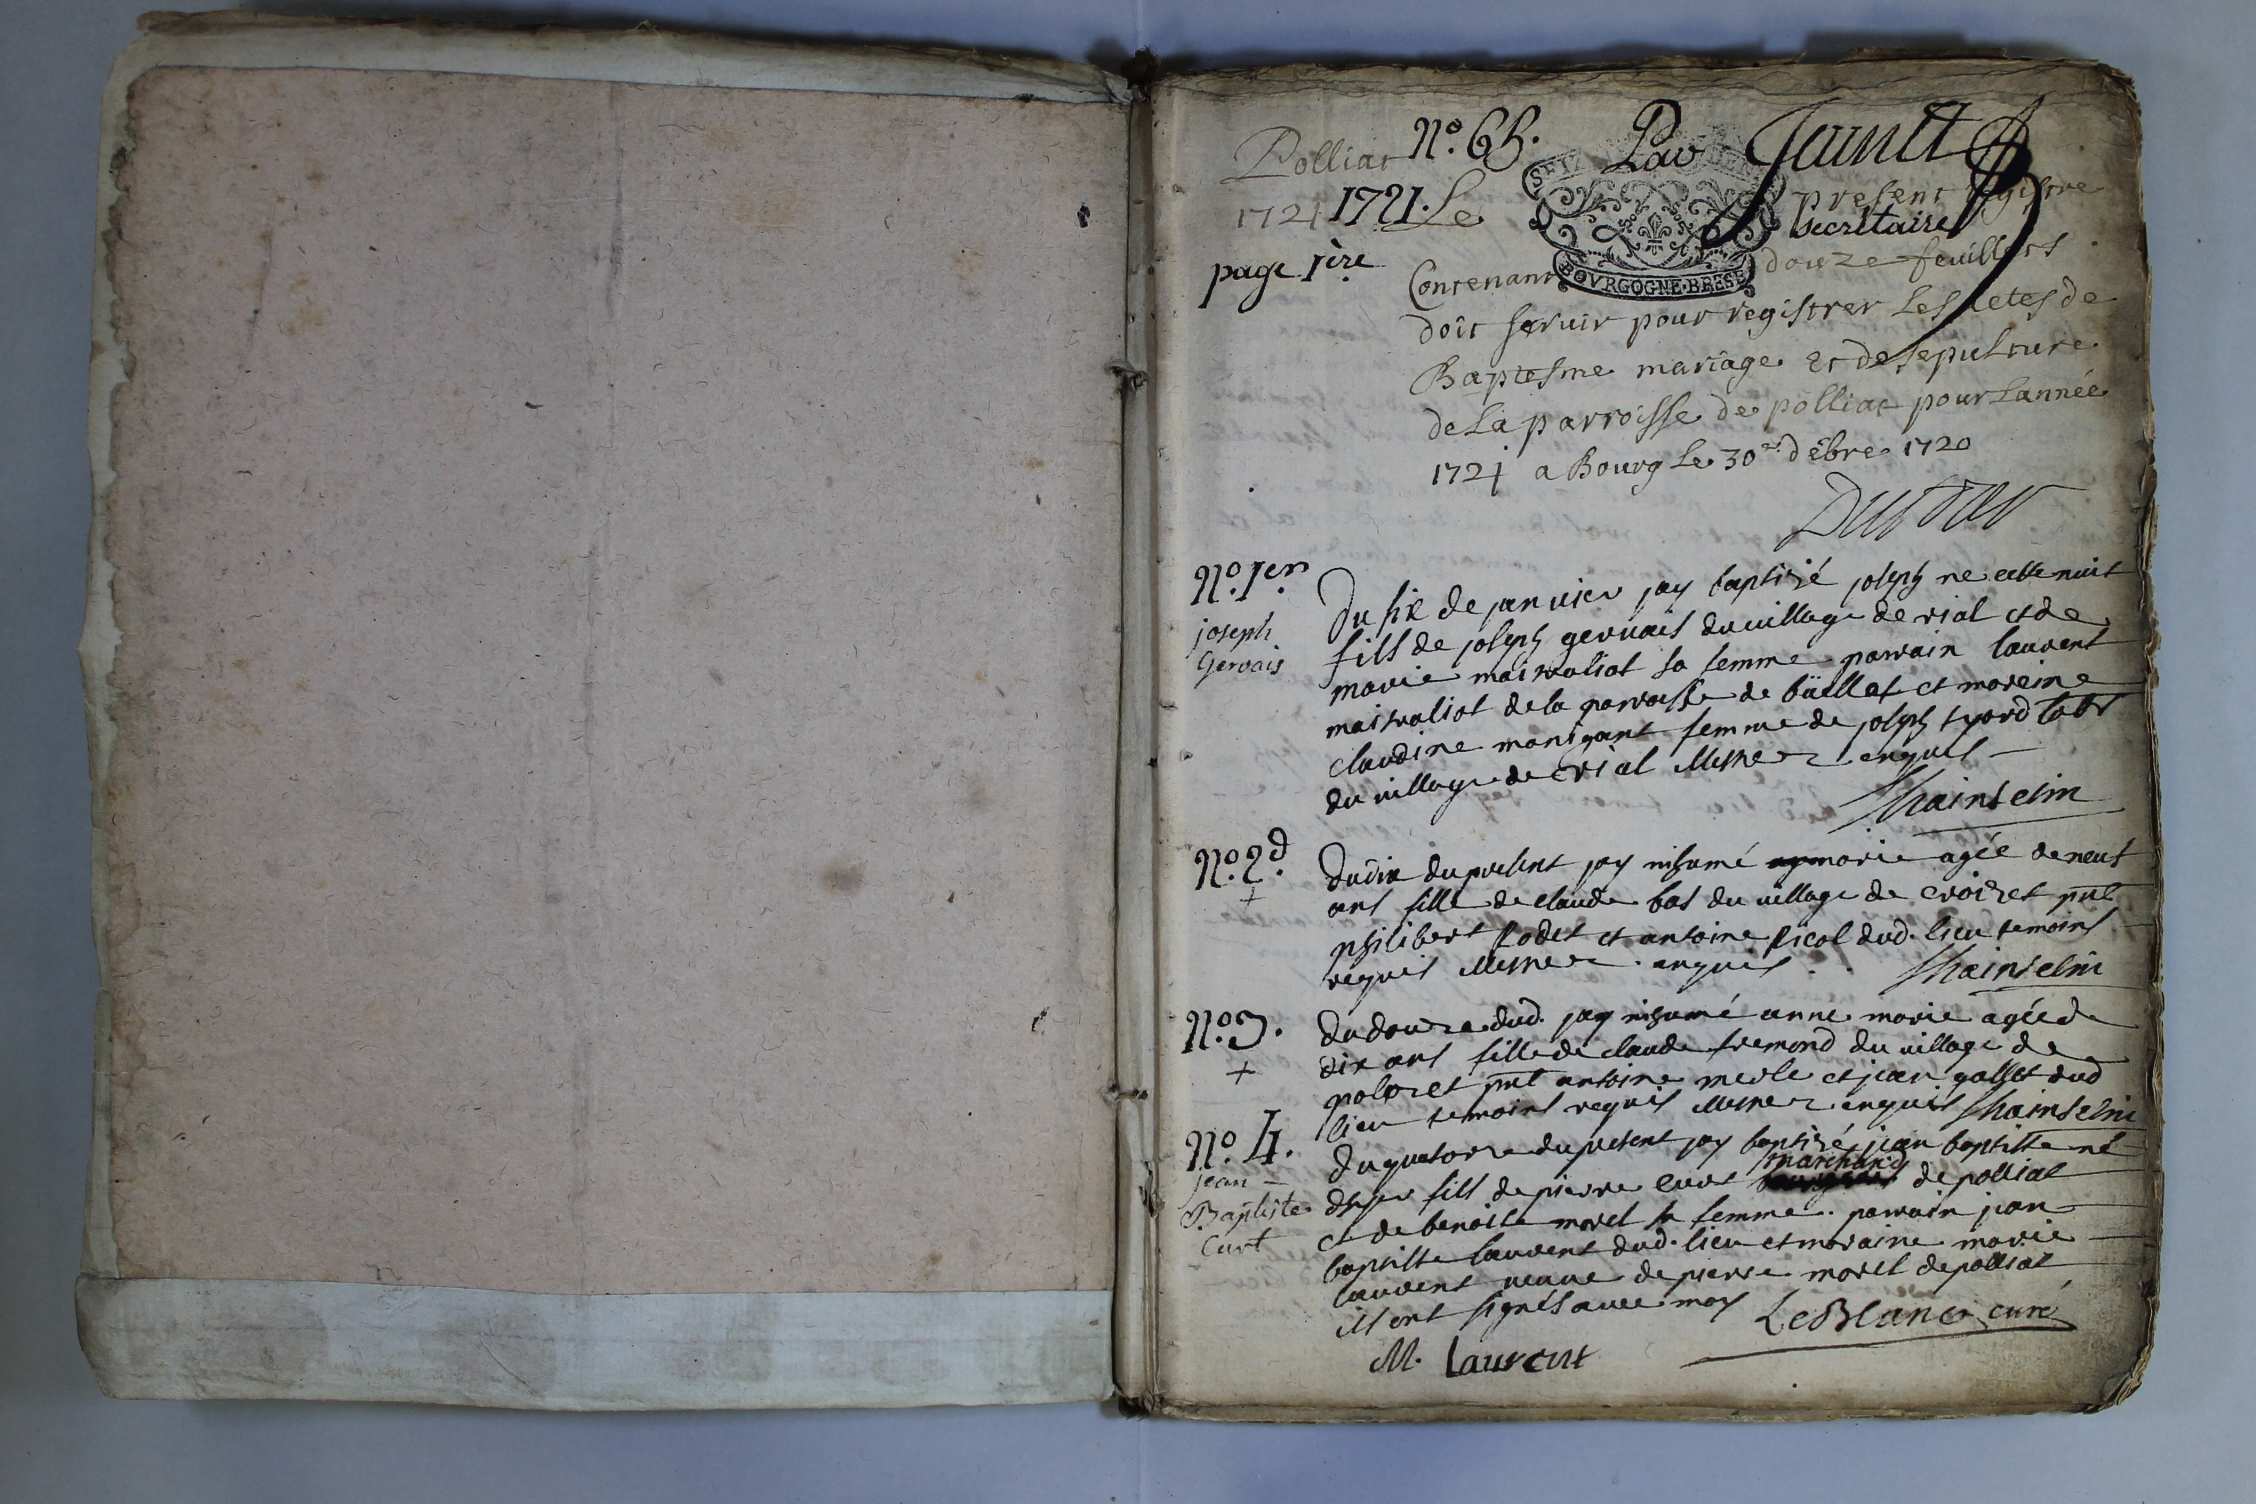 Polliat N.º 65. Par Jantet
1721 1721. Le present registre
secretaire
BOVRGOGNE·BRESSE
page 1ère
Contenant douze feuillets
doit servir pour registrer Les actes de
Baptesme mariage et de sepulture
de La parroisse de polliat pour Lannée
1721 a Bourg Le 30e. débre 1720
N.º 1er.
joseph
Gervais
Du six de janvier jay baptizé joseph ne cette nuit
fils de joseph gervais du village de rial et de
marie maitraliat sa femme parrain laurent
maitraliat de la parroisse de büellet et moreine
claudine monigant femme de joseph tyord labr
du village de rial illitere enquis
Chainselin
N.º 2d.
Du dix du present jay inhumé marie agée de neuf
ans fille de claude bas du village de croiset pnt
philibert Rodet et antoine picol dud. lieu temoins
requis enquis
Chainselin
N.º 3.
Du douze dud. jay inhumé anne marie agée de
dix ans fille de claude fremond du village de
poloret pnt antoine merle et jean gallet dud
lieu temoins requis enquis Chainselin
N.º 4.
jean
Baptiste
Curt
Du quatorze du present jay baptizé jean baptiste né
dhyer fils de pierre curt marchand de polliat
et de benoite morel sa femme. parrain jean
baptiste laurent dud. lieu et moraine marie
laurent veuve de pierre morel de polliat
ils ont signés avec moy LeBlanc curé
M. laurent